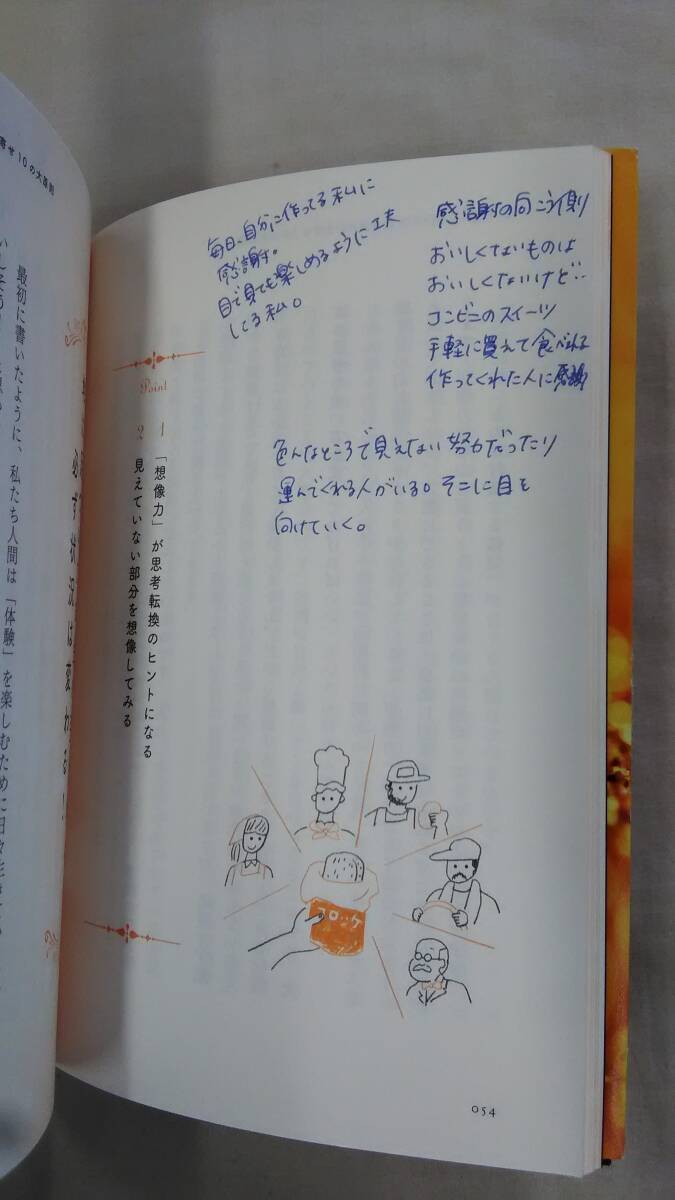 感謝の向こう側
おいしくないものは
おいしくないけど…
コンビニのスイーツ
手軽に買えて食べれる
作ってくれた人に感謝
毎日、自分に作ってる私に
感謝。
目で見ても楽しめるように工夫
してる私。
色んなところで見えない努力だったり
運んでくれる人がいる。そこに目を
向けていく。
Point
1 「想像力」が思考転換のヒントになる
2 見えていない部分を想像してみる
コロッケ
054
必ず状況は変わる!
寄せ10の大原則
最初に書いたように、私たち人間は「体験」を楽しむために日々